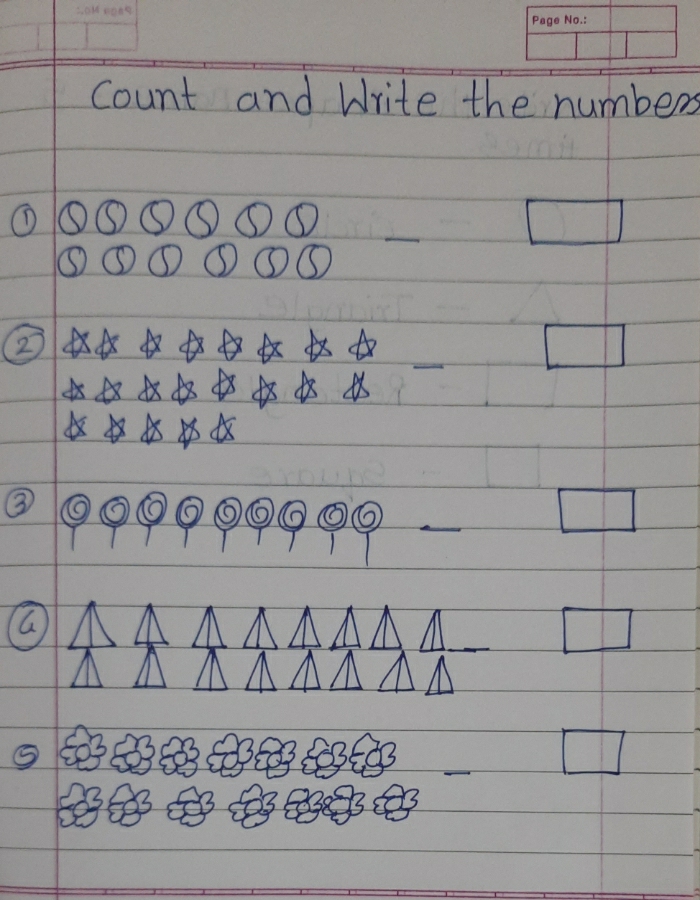 Page No.:
Count and Write the numbers
1
2
3
4
5